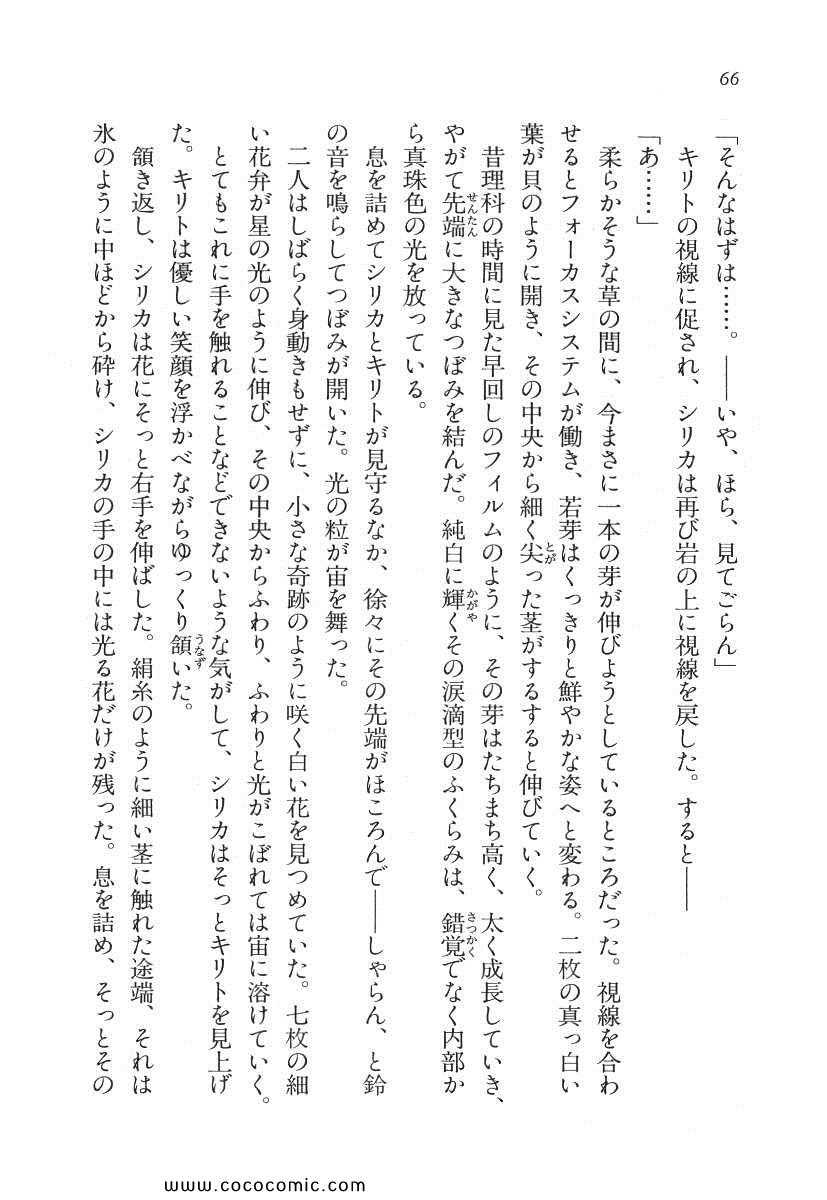 66
「そんなはずは……。――いや、ほら、見てごらん」
キリトの視線に促され、シリカは再び岩の上に視線を戻した。すると――
「あ……」
柔らかそうな草の間に、今まさに一本の芽が伸びようとしているところだった。視線を合わ
せるとフォーカスシステムが働き、若芽はくっきりと鮮やかな姿へと変わる。二枚の真っ白い
葉が貝のように開き、その中央から細く尖った茎がするすると伸びていく。
昔理科の時間に見た早回しのフィルムのように、その芽はたちまち高く、太く成長していき、
やがて先端に大きなつぼみを結んだ。純白に輝くその涙滴型のふくらみは、錯覚でなく内部か
ら真珠色の光を放っている。
息を詰めてシリカとキリトが見守るなか、徐々にその先端がほころんで――しゃらん、と鈴
の音を鳴らしてつぼみが開いた。光の粒が宙を舞った。
二人はしばらく身動きもせずに、小さな奇跡のように咲く白い花を見つめていた。七枚の細
い花弁が星の光のように伸び、その中央からふわり、ふわりと光がこぼれては宙に溶けていく。
とてもこれに手を触れることなどできないような気がして、シリカはそっとキリトを見上げ
た。キリトは優しい笑顔を浮かべながらゆっくり頷いた。
頷き返し、シリカは花にそっと右手を伸ばした。絹糸のように細い茎に触れた途端、それは
氷のように中ほどから砕け、シリカの手の中には光る花だけが残った。息を詰め、そっとその
www.cococomic.com